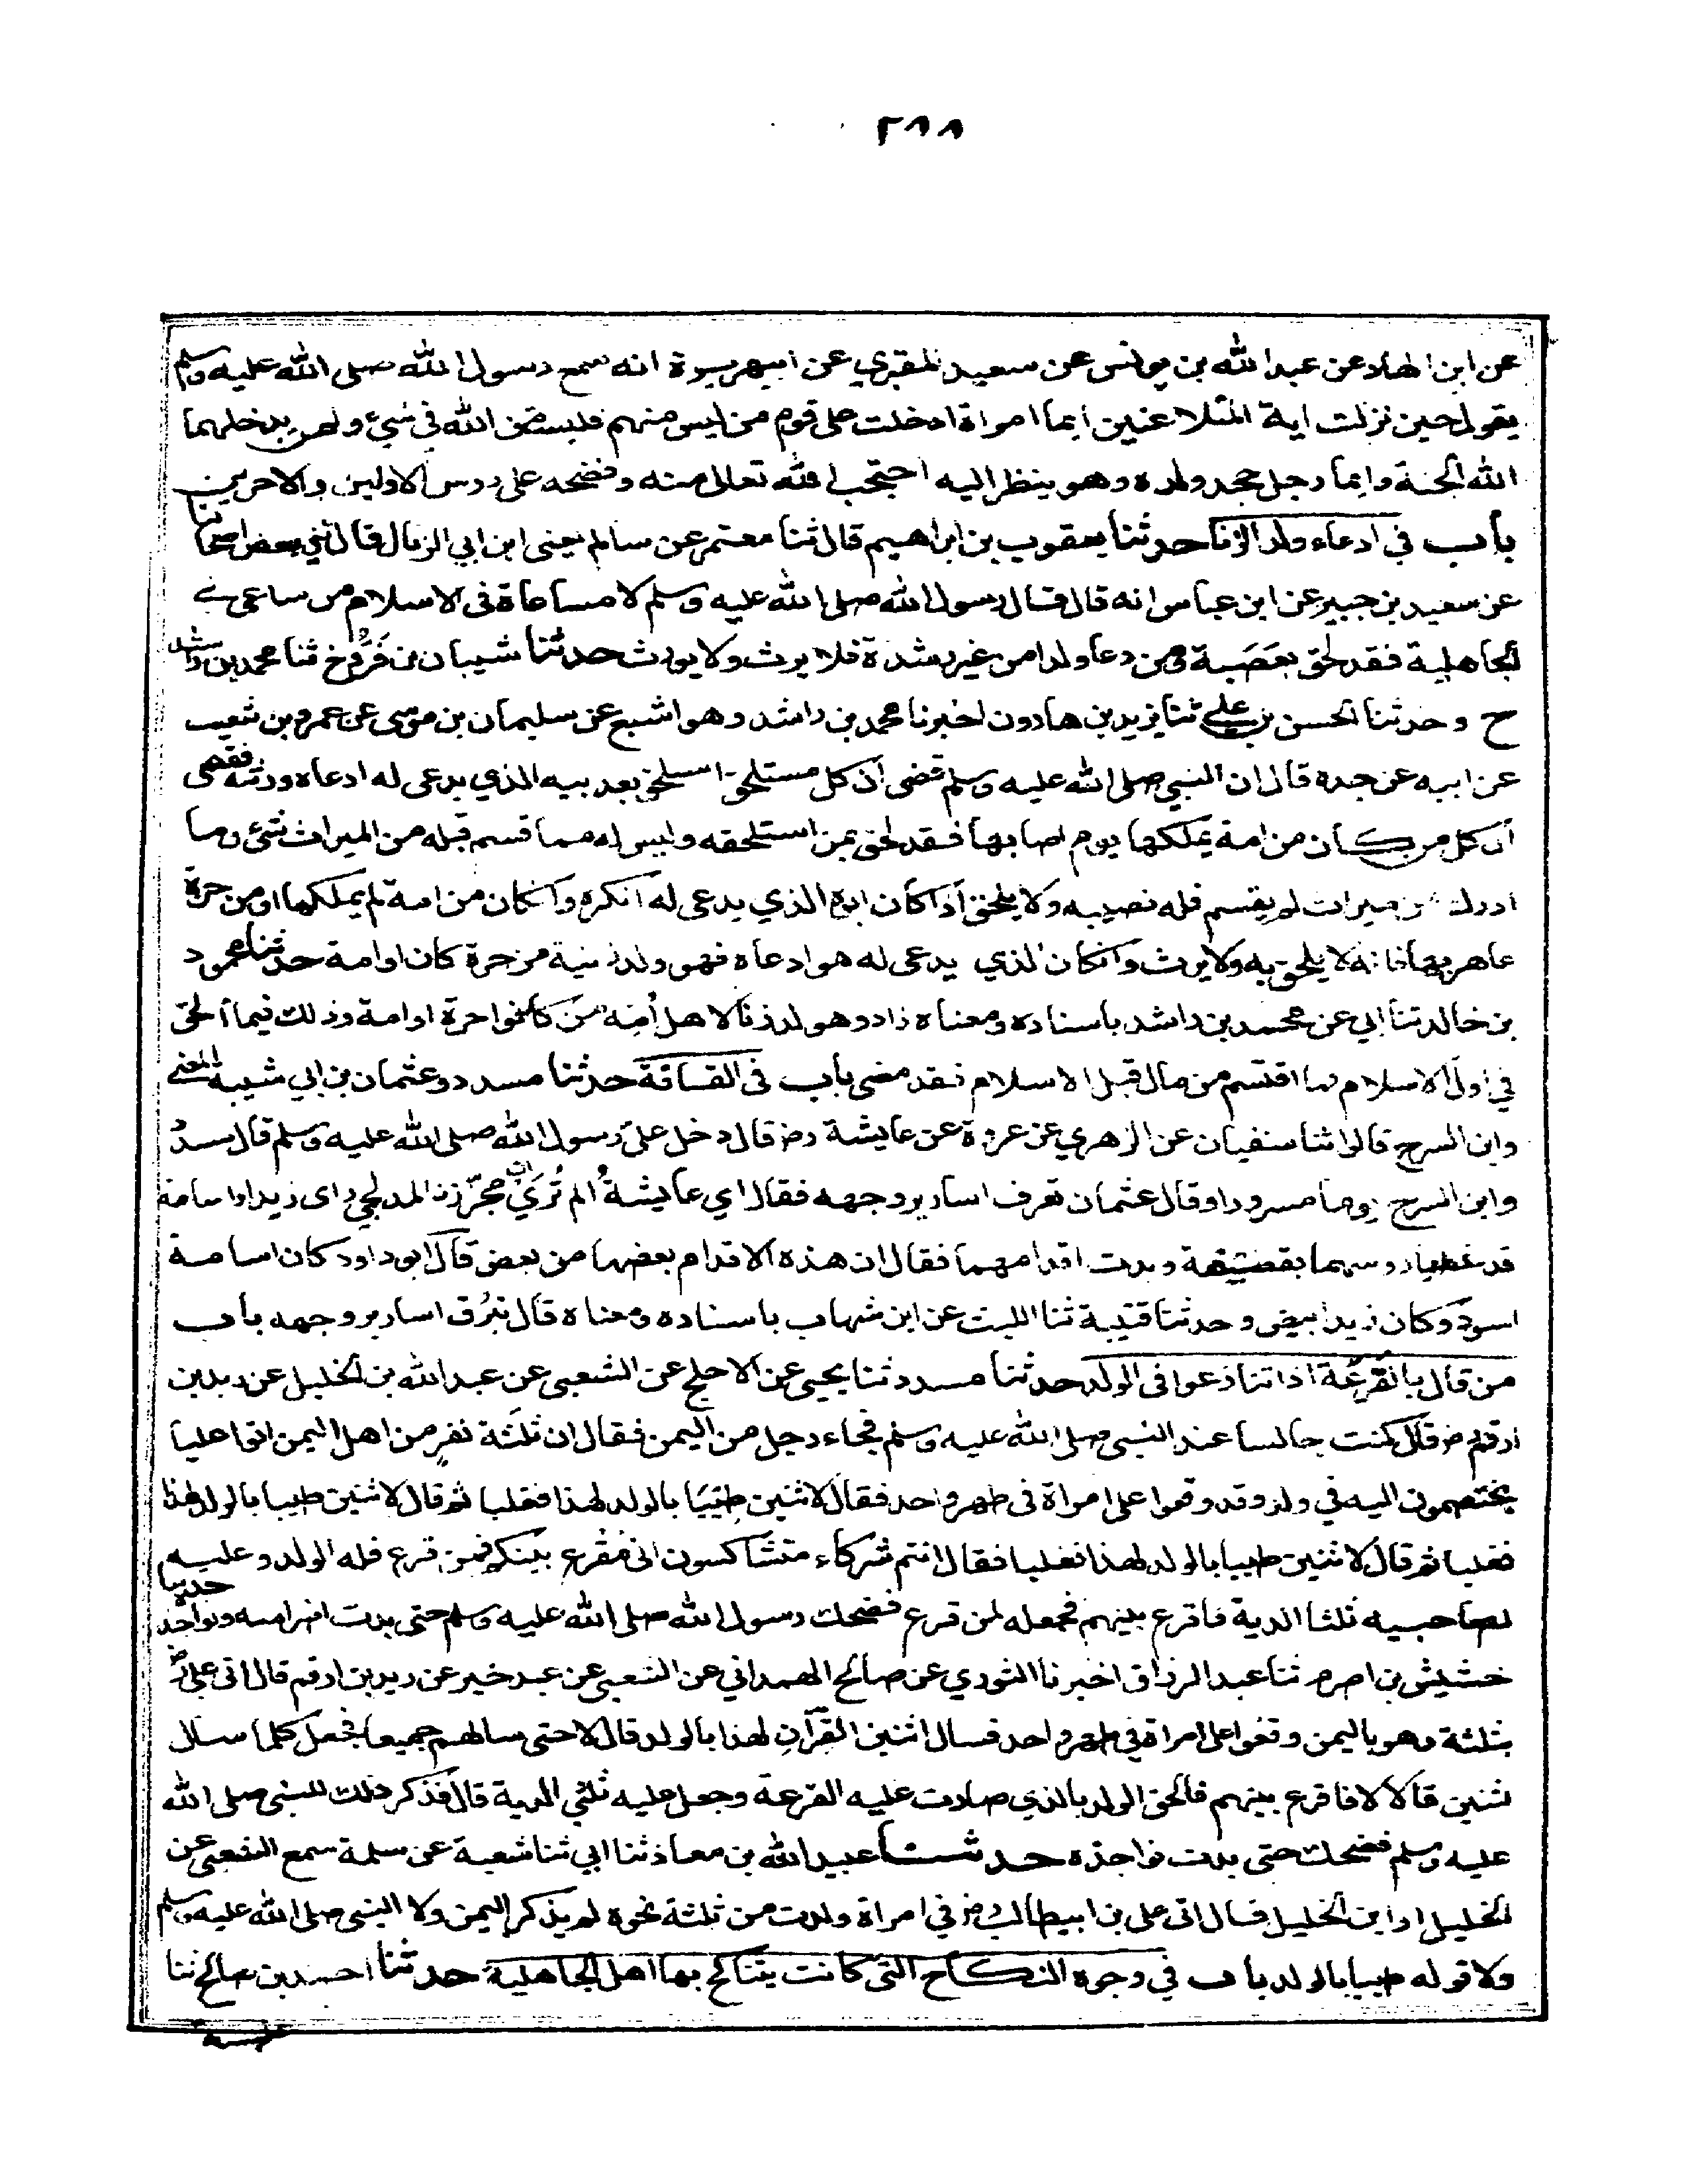 ٢٨٨
عن ابن الهاد عن عبد الله بن يونس عن سعيد المقبري عن ابي هريرة انه سمع رسول الله صلى الله عليه وسلم
يقول حين نزلت اية المتلاعنين ايما امراة ادخلت على قوم من ليس منهم فليست من الله في شيء ولن يدخلها
الله الجنة وايما رجل جحد ولده وهو ينظر اليه احتجب الله تعالى منه وفضحه على روس الاولين والاخرين
باب في ادعاء ولد الزنا حدثنا يعقوب بن ابراهيم قال ثنا معتمر عن سالم يعنى ابن ابي الزناد قال ثني بعض اصحابنا
عن سعيد بن جبير عن ابن عباس انه قال قال رسول الله صلى الله عليه وسلم لا مساعاة فى الاسلام من ساعى في
الجاهلية فقد لحق بعصبة ومن دعا ولدا من غير رشدة فلا يرث ولا يورث حدثنا شيبان بن فَرُّوخ ثنا محمد بن راشد
ح وحدثنا الحسن بن علي ثنا يزيد بن هارون اخبرنا محمد بن راشد وهو اشبع عن سليمان بن موسى عن عمرو بن شعيب
عن ابيه عن جده قال ان النبي صلى الله عليه وسلم قضى ان كل مستلحق استلحق بعد ابيه الذي يدعى له ادعاه ورثته فقضى
ان كل من كان من امة يملكها يوم اصابها فقد لحق بمن استلحقه وليس له مما قسم قبله من الميراث شيء وما
ادرك من ميراث لم يقسم فله نصيبه ولا يلحق اذا كان ابوه الذي يدعى له انكره وان كان من امة لم يملكها او من حرة
عاهر بها فانه لا يلحق به ولا يرث وان كان الذي يدعى له هو ادعاه فهو ولد زنية من حرة كان او امة حدثنا محمود
بن خالد ثنا ابي عن محمد بن راشد باسناده ومعناه زاد وهو ولد زنا لاهل أمه من كانوا حرة او امة وذلك فيما استلحق
في اول الاسلام فما اقتسم من مال قبل الاسلام فقد مضى باب فى القافة حدثنا مسدد وعثمان بن ابي شيبة المعنى
وابن السرح قالوا ثنا سفيان عن الزهري عن عروة عن عايشة رض قال دخل عليّ رسول الله صلى الله عليه وسلم قال مسدد
وابن السرح يوما مسرورا وقال عثمان تعرف اسارير وجهه فقال اي عايشةُ الم تُرَيْ ان مجزّزا المدلجي راى زيدا واسامة
قد غطيا روسهما بقطيفة وبدت اقدامهما فقال ان هذه الاقدام بعضها من بعض قال ابو داود كان اسامة
اسود وكان زيد ابيض وحدثنا قتيبة ثنا الليث عن ابن شهاب باسناده ومعناه قال تبرُق اسارير وجهه باب
من قال بالقرعة اذا تنازعوا فى الولد حدثنا مسدد ثنا يحيى عن الاجلح عن الشعبى عن عبد الله بن الخليل عن زيد بن
ارقم رض قال كنت جالسا عند النبى صلى الله عليه وسلم فجاء رجل من اليمن فقال ان ثلثة نفر من اهل اليمن اتوا عليا
يختصمون اليه في ولد وقد وقعوا على امراة فى طهر واحد فقال لاثنين طيبا بالولد لهذا فغلبا ثم قال لاثنين طيبا بالولد لهذا
فغلبا ثم قال لاثنين طيبا بالولد لهذا فغلبا فقال انتم شركاء متشاكسون انى مقرع بينكم فمن قرع فله الولد وعليه
لصاحبيه ثلثا الدية فاقرع بينهم فجعله لمن قرع فضحك رسول الله صلى الله عليه وسلم حتى بدت اضراسه ونواجذه حدثنا
خشيش بن اصرم ثنا عبد الرزاق اخبرنا الثوري عن صالح الهمداني عن الشعبي عن عبد خير عن زيد بن ارقم قال اتى علي رض
بثلثة وهو باليمن وقعوا على امراة في طهر واحد فسال اثنين اتقران لهذا بالولد قال لا حتى سالهم جميعا فجعل كلما سال
اثنين قالا لا فاقرع بينهم فالحق الولد بالذي صارت عليه القرعة وجعل عليه ثلثي الدية قال فذكر ذلك للنبى صلى الله
عليه وسلم فضحك حتى بدت نواجذه حدثنا عبيد الله بن معاذ ثنا ابي ثنا شعبة عن سلمة سمع الشعبي عن
الخليل او ابن الخليل قال اتى على بن ابي طالب رض في امراة ولدت من ثلثة نحوه لم يذكر اليمن ولا النبى صلى الله عليه وسلم
ولا قوله طيبا بالولد باب في وجوه النكاح التى كانت يتناكح بها اهل الجاهلية حدثنا احمد بن صالح ثنا
عنبسة